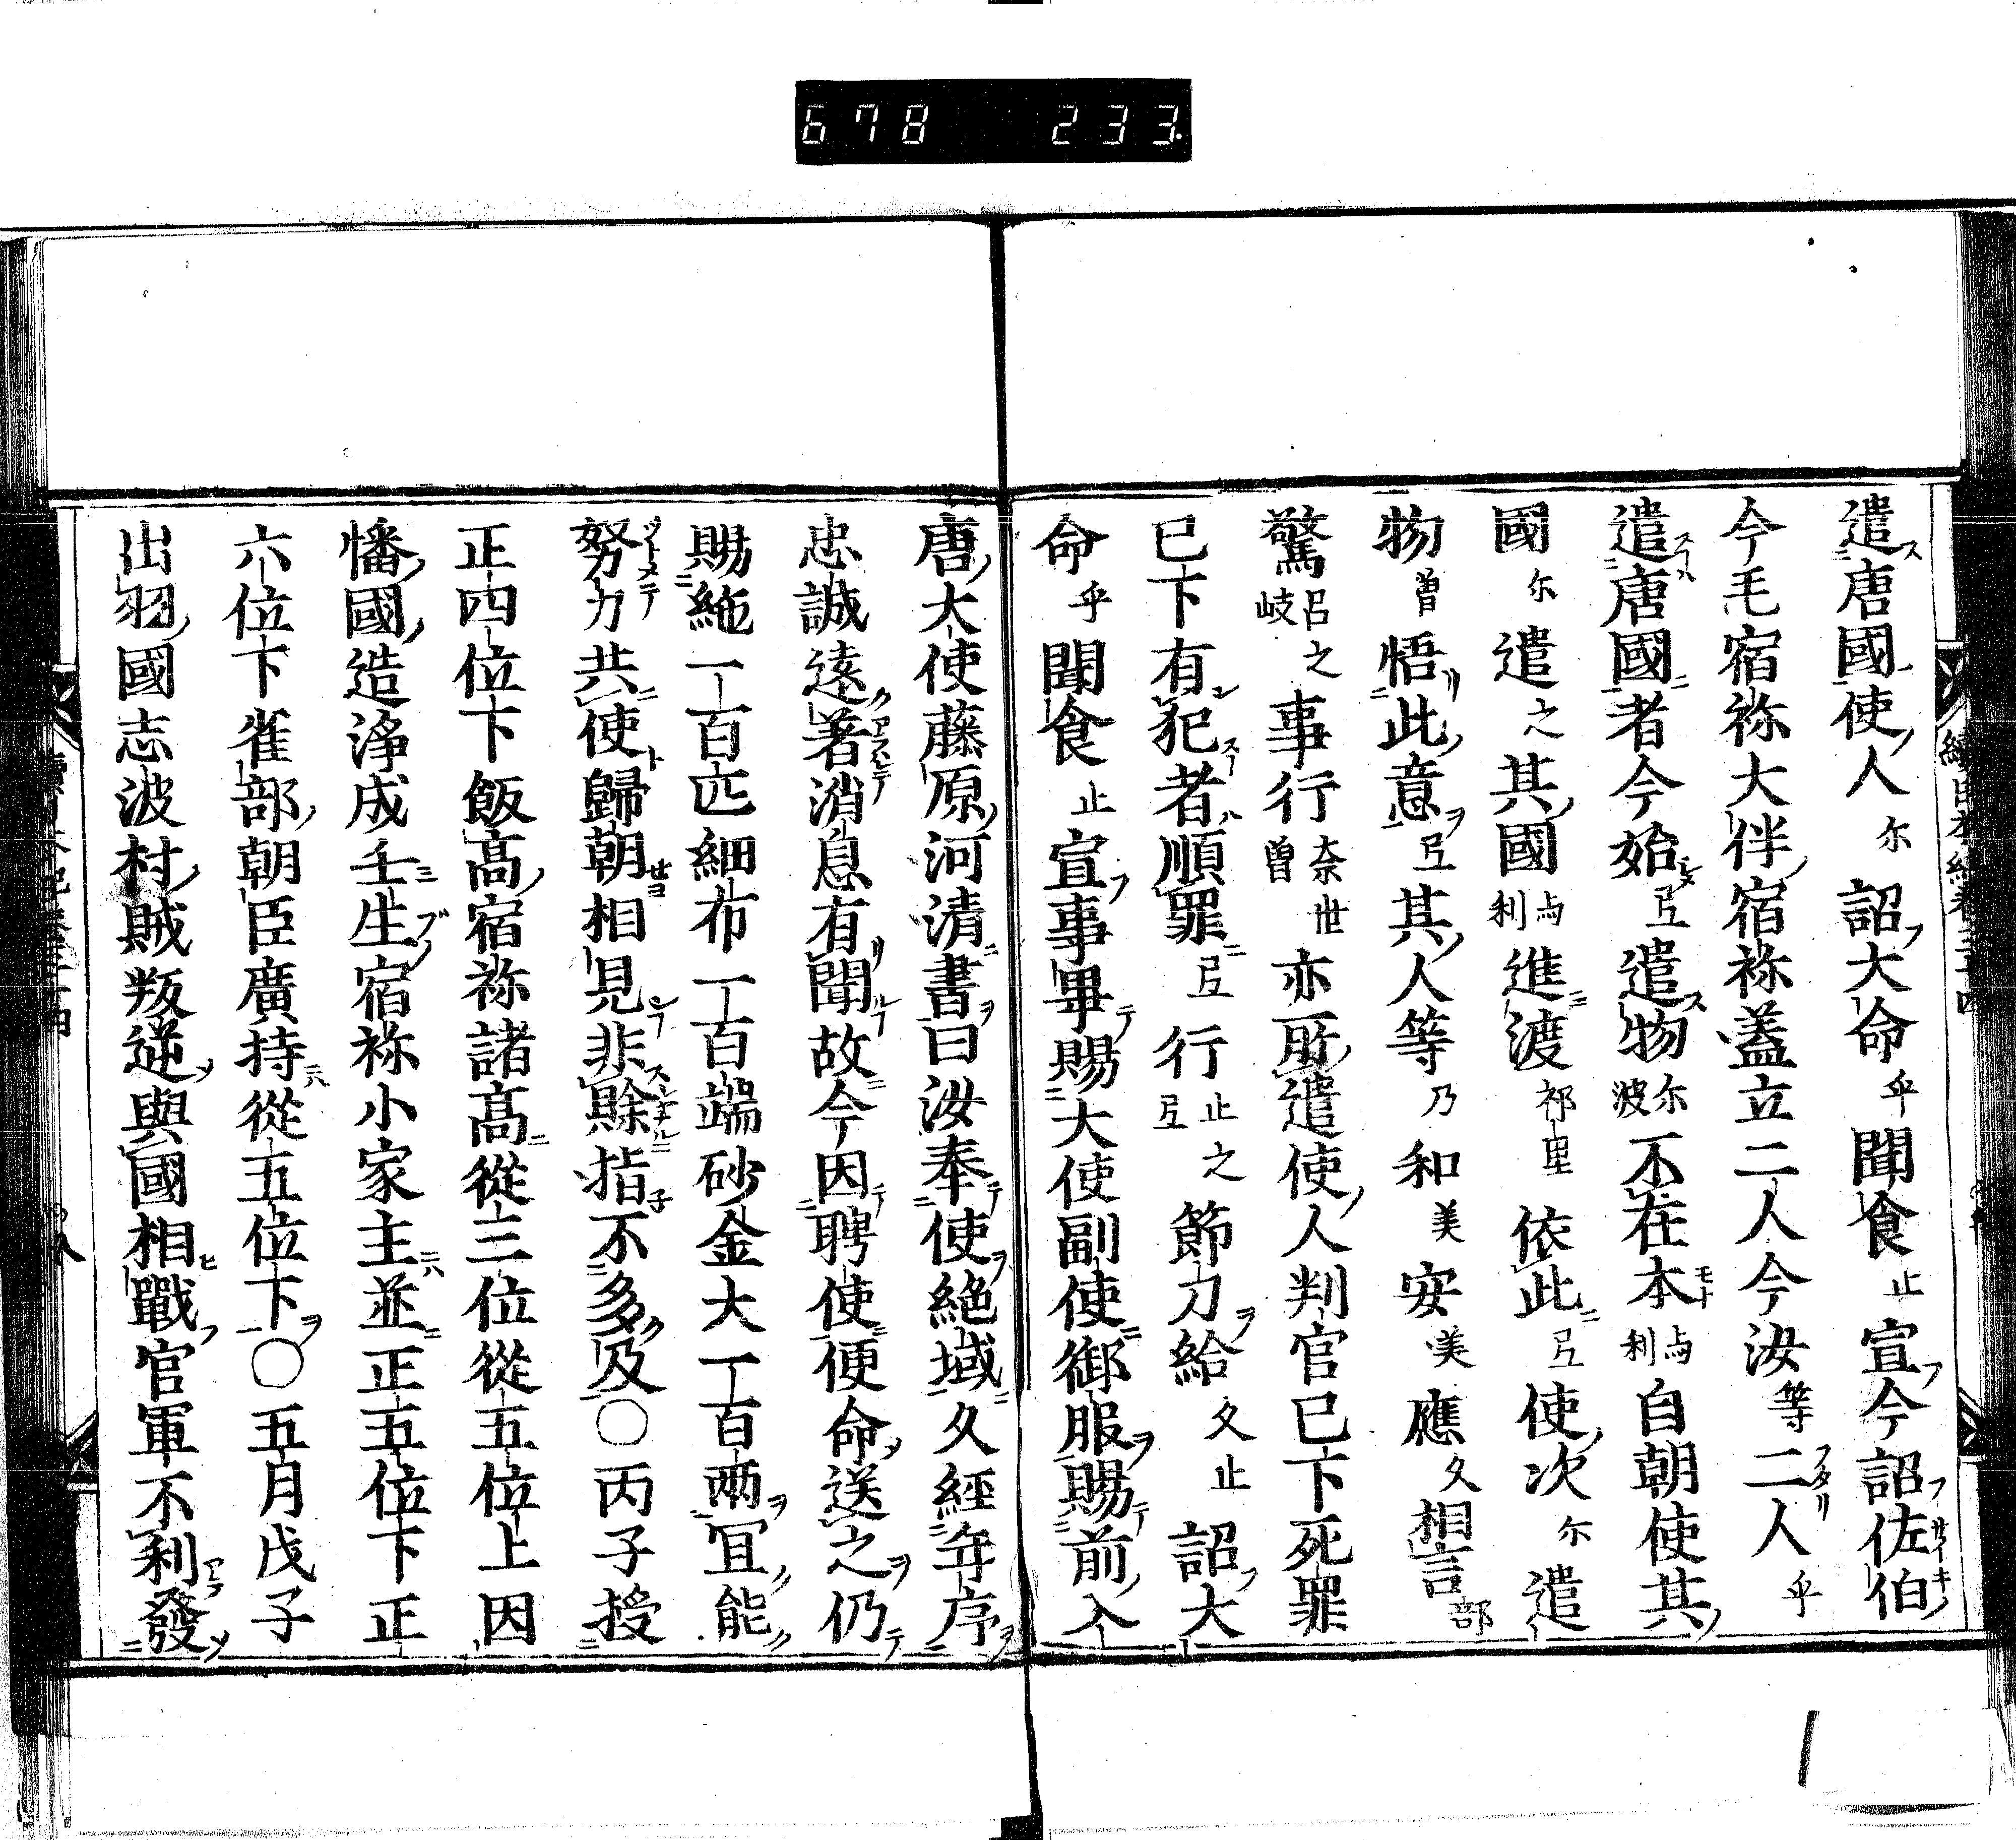 678 233
遣唐國使人尓詔大命乎聞食止宣今詔佐伯
今毛宿祢大伴宿祢益立二人今汝等二人乎
遣唐國者今始弖遣物尓波不在本与利自朝使其
國尓遣之其國与利進渡祁里依此弖使次尓遣
物曽悟此意弖其人等乃和美安美應久相言部
驚呂之岐事行奈世曽亦所遣使人判官已下死罪
已下有犯者順罪弖行止之弖節刀給久止詔大
命乎聞食止宣事畢賜大使副使御服賜前入
唐大使藤原河清書曰汝奉使絶域久經年序
忠誠遠著消息有聞故今因聘使便命送之仍
賜絁一百匹細布一百端砂金大一百兩宜能
努力共使歸朝相見非賒指不多及〇丙子授
正四位下飯高宿祢諸高從三位從五位上因
幡國造淨成壬生宿祢小家主並正五位下正
六位下雀部朝臣廣持從五位下〇五月戊子
出羽國志波村賊叛逆與國相戰官軍不利發